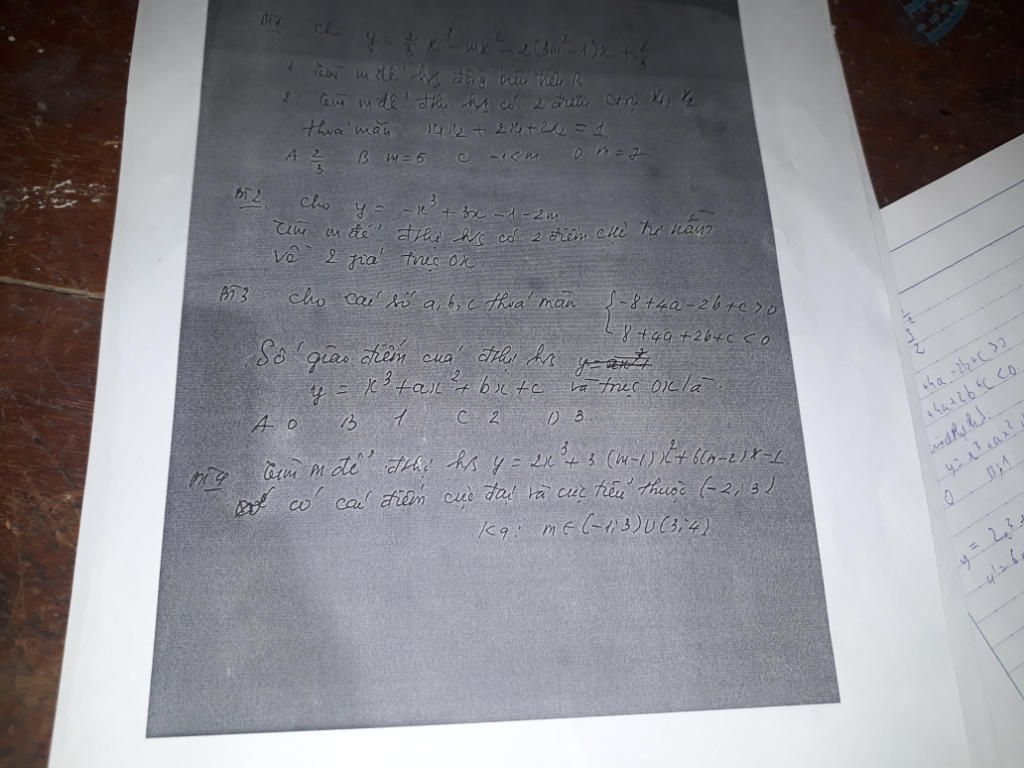 BT1 cho y = 2/3 x³ - mx² - 2(3m² - 1)x + 2/3
1 Tìm m để hs đồng biến trên R
2 Tìm m để đthị hs có 2 điểm ctrị x₁, x₂
thoả mãn x₁x₂ + 2x₁ + 2x₂ = 1
A 2/3 B m = 5 C -1 < m D m = 7.
BT2. cho y = -x³ + 3x - 1 - 2m
Tìm m để đthị hs có 2 điểm cực trị nằm
về 2 phía trục Ox
BT3 cho các số a, b, c thoả mãn { -8 + 4a - 2b + c > 0
8 + 4a + 2b + c < 0
Số giao điểm của đthị hs
y = x³ + ax² + bx + c và trục Ox là
A 0 B 1 C 2 D 3.
BT4 Tìm m để đthị hs y = 2x³ + 3(m-1)x² + 6(m-2)x - 1
có các điểm cực đại và cực tiểu thuộc (-2; 3)
Kq: m ∈ (-1; 3) ∪ (3; 4)
+4a - 2b + c > 0
+4a + 2b + c < 0
y = x³ + ax²
0
y = 2x³ +